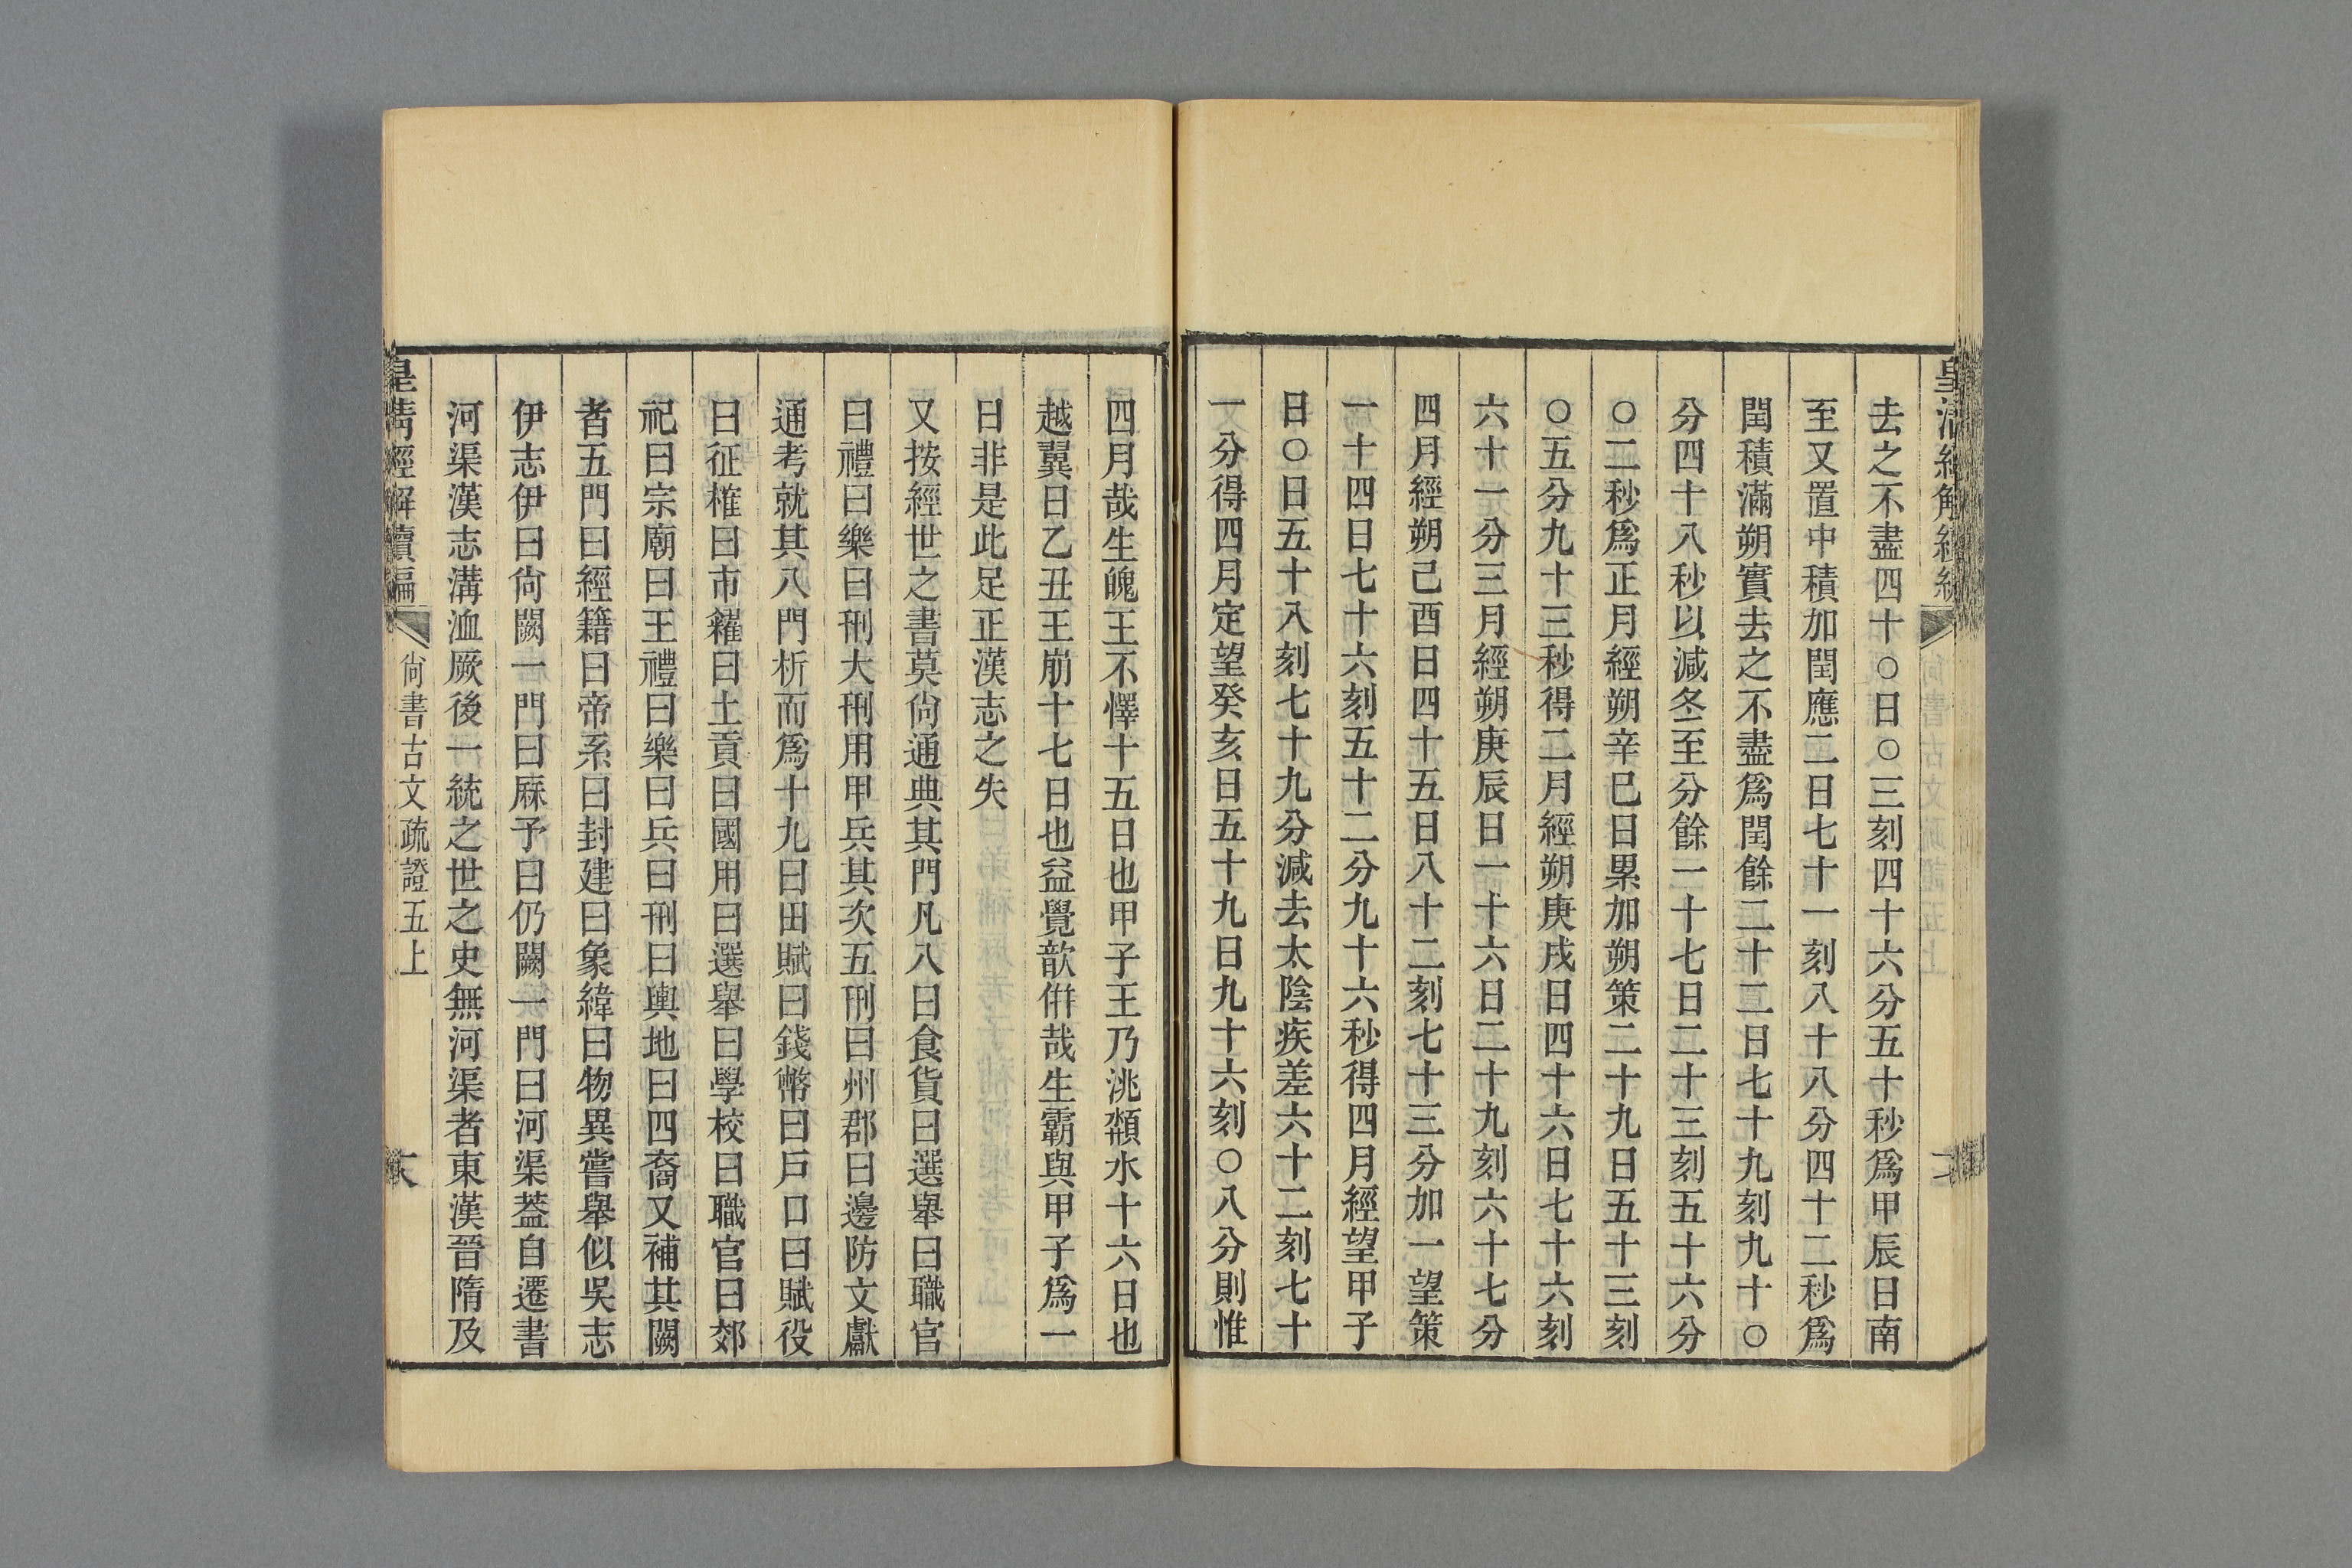 去之不盡四十○日○三刻四十六分五十秒爲甲辰日南
至又置中積加閏應二日七十一刻八十八分四十二秒爲
閏積滿朔實去之不盡爲閏餘二十二日七十九刻九十○
分四十八秒以減冬至分餘一十七日二十三刻五十六分
○二秒爲正月經朔辛巳日累加朔策二十九日五十三刻
○五分九十三秒得二月經朔庚戌日四十六日七十六刻
六十一分三月經朔庚辰日一十六日二十九刻六十七分
四月經朔己酉日四十五日八十二刻七十三分加一望策
一十四日七十六刻五十二分九十六秒得四月經望甲子
日○日五十八刻七十九分減去太陰疾差六十二刻七十
一分得四月定望癸亥日五十九日九十六刻○八分則惟
四月哉生魄王不懌十五日也甲子王乃洮頮水十六日也
越翼日乙丑王崩十七日也益覺歆倂哉生霸與甲子爲一
日非是此足正漢志之失
又按經世之書莫尙通典其門凡八曰食貨曰選舉曰職官
曰禮曰樂曰刑大刑用甲兵其次五刑曰州郡曰邊防文獻
通考就其八門析而爲十九曰田賦曰錢幣曰戶口曰賦役
曰征榷曰市糴曰土貢曰國用曰選舉曰學校曰職官曰郊
祀曰宗廟曰王禮曰樂曰兵曰刑曰輿地曰四裔又補其闕
者五門曰經籍曰帝系曰封建曰象緯曰物異嘗舉似吳志
伊志伊曰尙闕一門曰厤予曰仍闕一門曰河渠葢自遷書
河渠漢志溝洫厥後一統之世之史無河渠者東漢晉隋及
皇清經解續編
尙書古文疏證五上